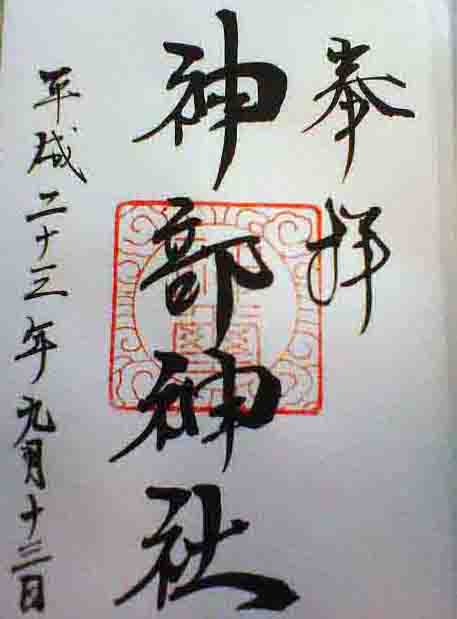 奉拝
神部神社
平成二十三年九月十三日